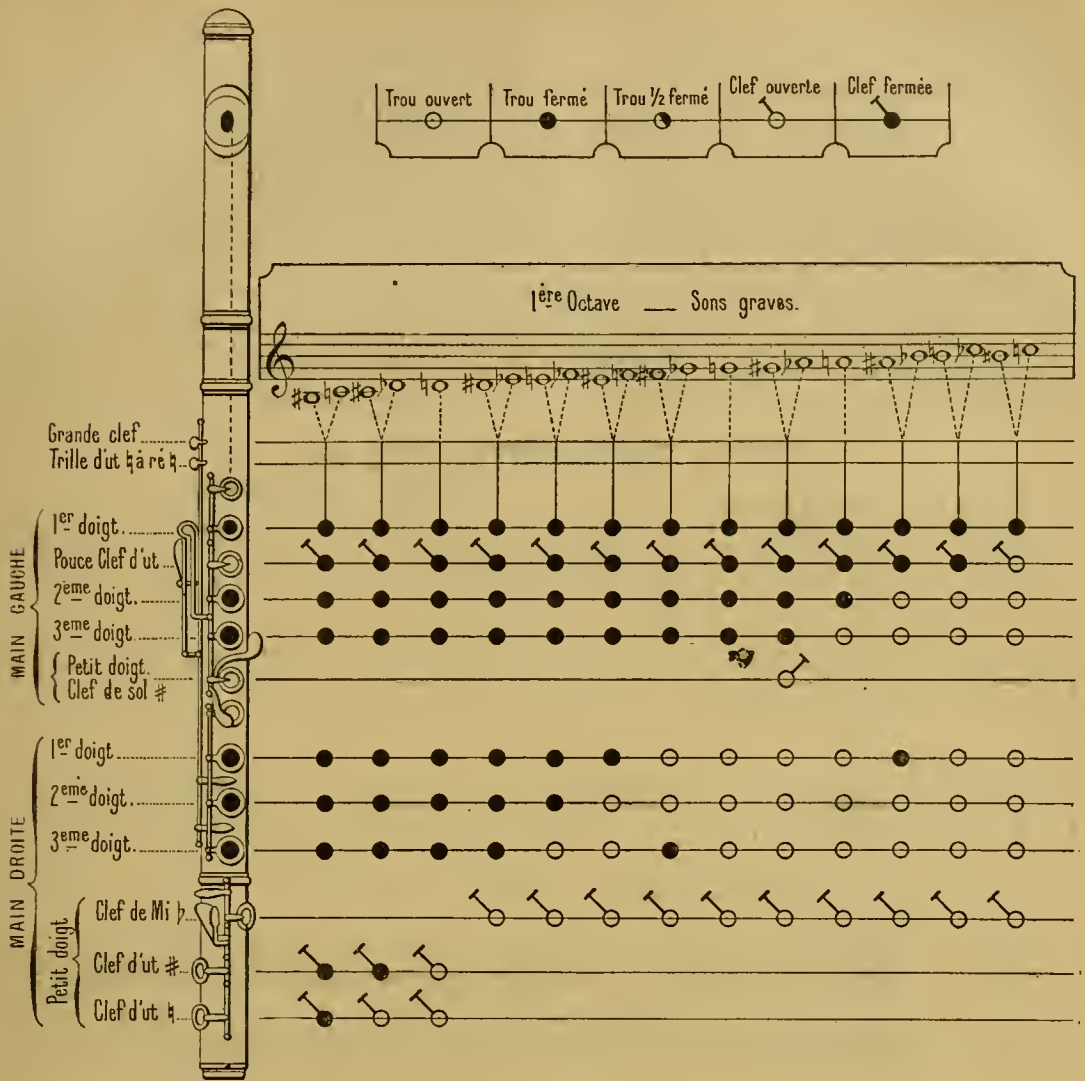 Trou ouvert
Trou fermé
Trou ½ fermé
Clef ouverte
Clef fermée
1ère Octave — Sons graves.
Grande clef
Trille d'ut ♮ à ré ♮
MAIN GAUCHE
1er doigt.
Pouce Clef d'ut
2eme doigt.
3eme doigt.
Petit doigt.
Clef de sol #
MAIN DROITE
1er doigt
2eme doigt.
3eme doigt.
Petit doigt
Clef de Mi ♭
Clef d'ut #
Clef d'ut ♮